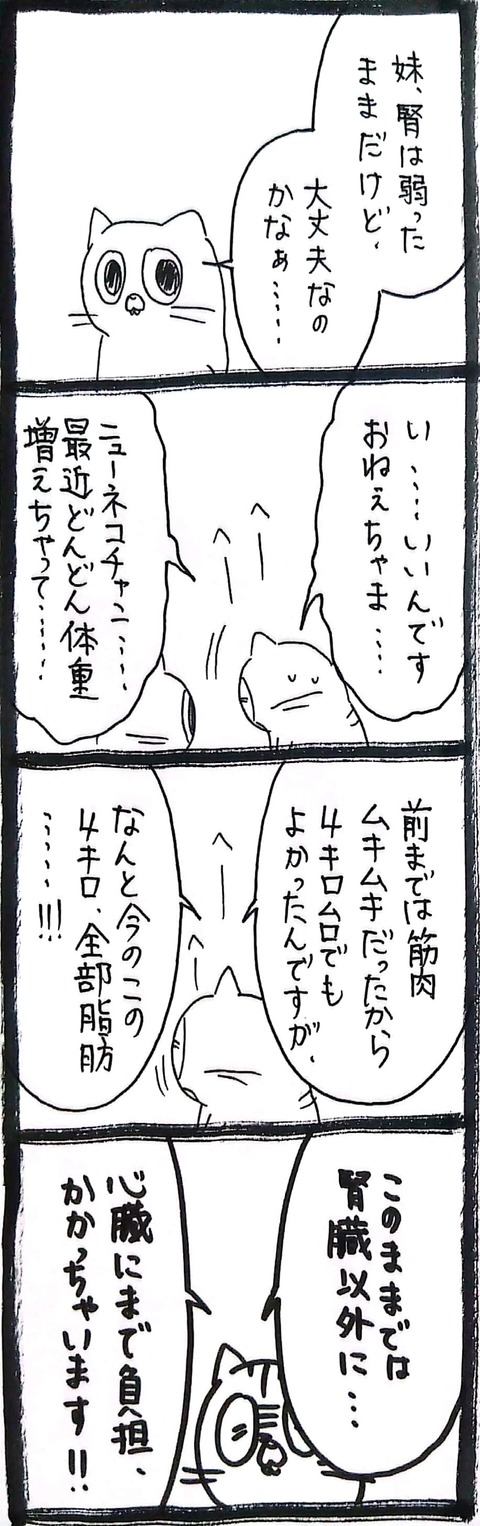 妹、腎は弱った
ままだけど、
大丈夫なの
かなぁ……
い……いいんです
おねぇちゃま……
ニューネコチャン……
最近どんどん体重
増えちゃって……
前までは筋肉
ムキムキだったから
4キロムロでも
よかったんですが、
なんと今のこの
4キロ、全部脂肪
……!!!
このままでは
腎臓以外に…
心臓にまで負担、
かかっちゃいます!!